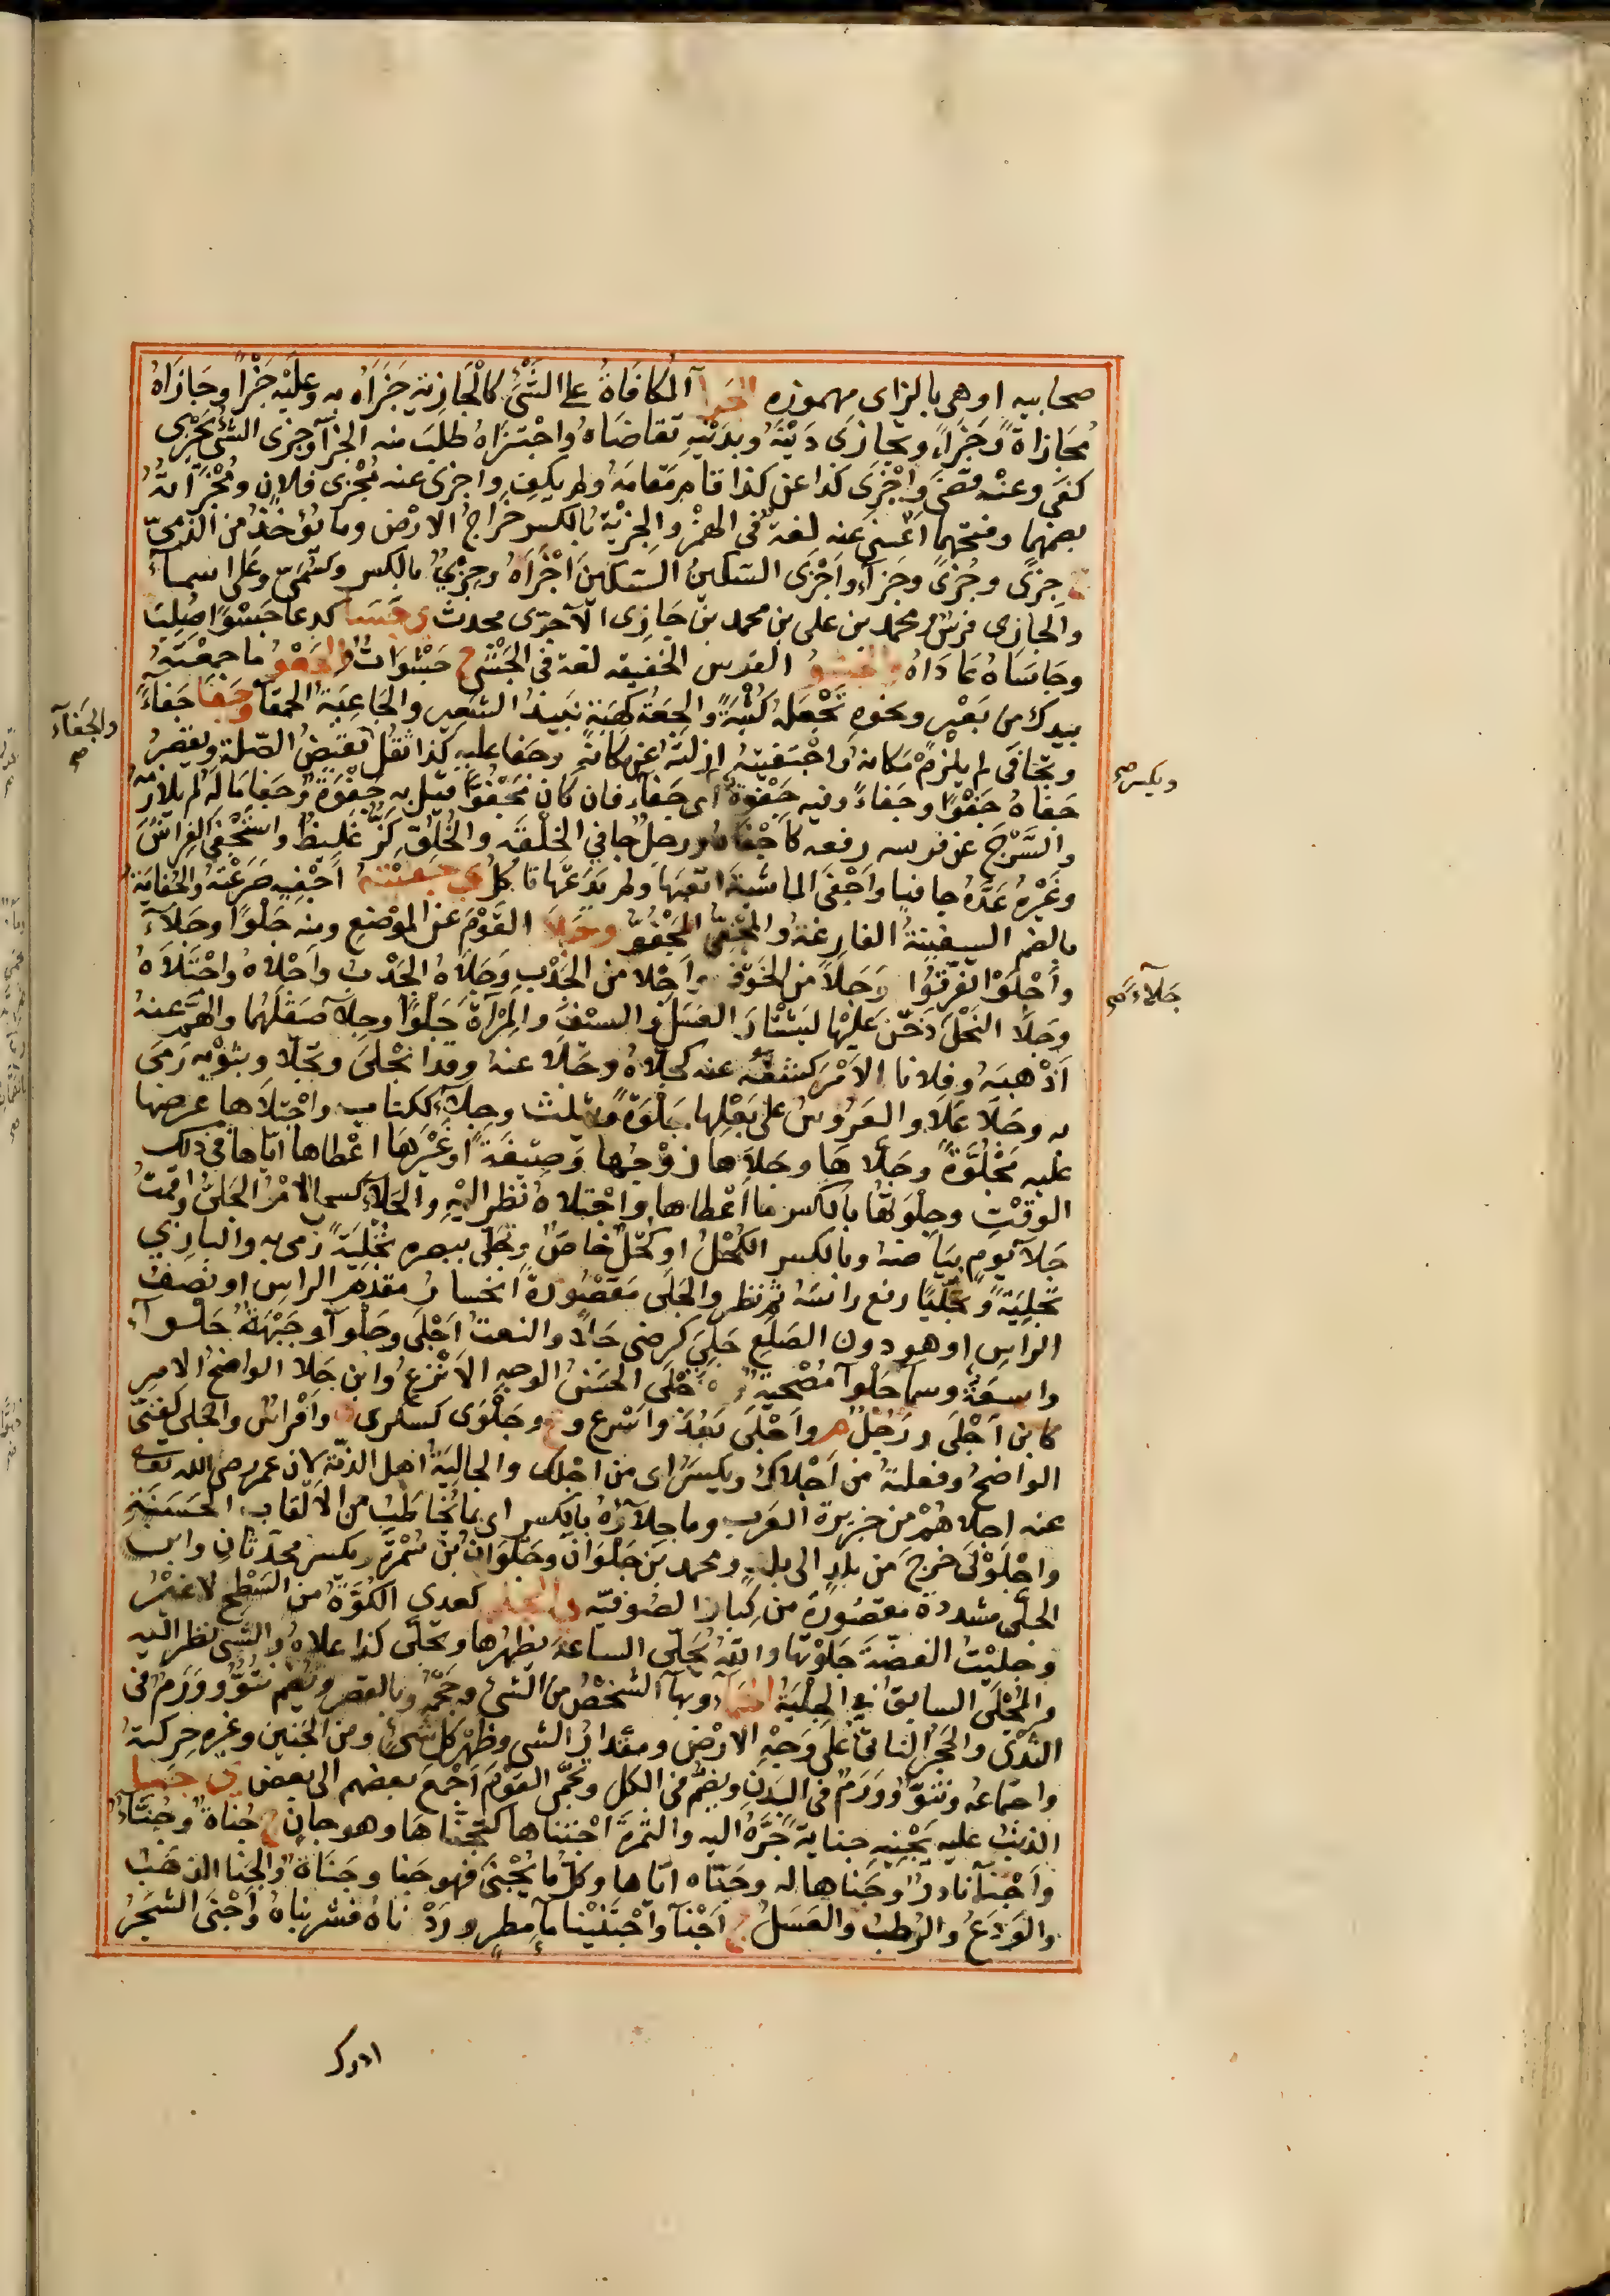 صحابيه او هى بالزاى مهموزه الجزا آلمكافاةُ على الشَّىْءِ كالْجازيةِ جَزَاهُ به وعليْه جَزَآءً وجَازَاهُ
مُجَازاةً وَجَزَآءً وتَجازَى دَيْنَهُ وبدَيْنِهِ تقاضَاهُ واجْتَزاهُ طلبَ منه الجزآ وجزى الشئ يَجزِى
كفَى وعنْه قضَى واَجْزَى كذا عن كذا قام مَقامَهُ ولم يكفِ واجزى عنه مُجْزى فلانٍ ومُجْزَاتَهُ
بضمهما وفتحهما اَغنىَ عنه لغةٌ فى الهمْزِ والجِزْيةُ بالكسر خراجُ الارْضِ وما يُؤخَذُ من الذمىّ
ج جِزًى وجِزْىٌ وجَزآءٌ واَجْزَى السّكينَ السّكينَ اَجْزَاهُ وجِزْىٌ بالكسر وكسُمَىٍّ وعَلىٍّ اسماءٌ
والجازِى فرسٌ ومحمد بن على بن محمد بن جَازِى الآجرى محدث و جَسَا كدعا جَسْوًا صَلُبَ
وجَاسَاهُ عَادَاهُ والجَشْوُ القوس الخفيفه لغة فى الجَشْءِ ج جَشْوَاتٌ والجَعْوُ ما جمعْتَهُ
بيدك من بَعْرٍ ونحوِهِ تَجْعَلُهُ كُثْبَةً والجِعَةُ كهِبَةٍ نبيذُ الشعيرِ والجَاعِيَةُ الحمقآ وجَفَا جَفآءً
وتجافَى لم يلزمْ مَكانهُ واجْتَفَيْتُهُ ازلتُهُ عن مكانهِ وجفا عليه كذا ثقُلَ والجفاءُ نقيضُ الصّلةِ ويقصَرُ
جفاهُ جَفْوًا وجَفاءً وفيهِ جَفْوةٌ اى جَفآء فان كان مَجْفُوًّا قيل به جَفْوَةٌ وجَفا مَالَهُ لم يلازمْه
والسَّرْجَ عن فرسه رفعه كاَجْفَاهُ ورجلٌ جافي الخلْقَه والخُلُقِ كزٌّ غليظٌ واستَجْفَى الفِراشَ
وغَيْرَهُ عَدَّهُ جافيا واَجْفَى الماشيَةَ اتعبَها ولم يَدَعْها تاكلُ ى جَفَيْتُهُ اَجْفِيهِ صَرَعْتُهُ والجُفايَةُ
بالضم السفينةُ الفارغةُ والمَجْفِىُّ المَجْفُوُّ و جَلا القَوْمُ عن الموْضعِ ومنه جَلْوًا وجَلآءً
واَجْلَوْا تفرَّقُوا وَجَلا من الخَوْف واَجْلا من الجَدْبِ وجَلاهُ الجَدْبُ واَجْلاهُ واجْتَلاهُ
وجَلا النَحْلَ دَخَّنَ عَليْها ليَشْتارَ العَسَلَ والسيْفَ والمِرْآةَ جَلْوًا وجِلآءً صَقلَهُما والهَمَّ عنهُ
اَذْهَبَهُ وفلانا الاَمْرَ كشفَهُ عنه كجَلاّهُ وجَلّا عنهُ وقد انْجَلىَ وتجلّا وبثوْبه رَمَى
به وجَلا عَلَا والعَرُوسَ على بَعْلِها جَلْوَةً ويثلث وجِلآءً ككتاب واجْتَلاَها عرضها
عليه مَجْلُوَّةً وجَلّاها وجَلاَها زوْجُها وَصِيفَةً او غَيْرَها اعْطاها ايّاها فى ذلك
الوقتِ وجِلْوَتُها بالكسر ما اَعْطاها واجْتلاهُ نظر اليْهِ والجَلآءُ كسمآء الاَمْرُ الجَلىُّ واَقمتُ
جَلآءَ يومٍ بيَاضَهُ وبالكسر الكُحْلُ او كُحْلٌ خاصٌ وجَلّى ببصره تَجْلِيَةً رَمى به والبازِي
تَجْلِيَةً وتَجَلِّيًا رفع رأسَهُ ثم نظر والجَلى مَقصُورةً انحسارُ مقدَّمِ الراسِ او نصفِ
الراسِ او هو دون الصَلَعِ جَلِىَ كرضى جَلاً والنعتُ اَجْلَى وجَلْوآءُ وجَبْهَةٌ جَلْوآءُ
واسعَةٌ وسمآ جَلْوآءُ مُصْحِيَةٌ والاَجْلَى الحَسَنُ الوجهِ الاَنْزَعُ وابن جَلا الواضحُ الامرِ
كابن اَجْلَى ورَجُلٌ م واَجْلَى بَعُدَ واسْرع و ع وجَلْوَى كسكرى ة واَفْراسٌ والجَلىُّ كغنىّ
الواضحُ وفعلتهُ من اَجْلاكَ ويكسَرُ اى من اجْلِكَ والجاليَةُ اهل الذمّة لان عمر رضى الله تعالى
عنه اجلاهُمْ من جزيرة العَرب وما جِلآؤُهُ بالكسر اى بما يُخَاطَبُ من الاَلْقاب الحَسَنةِ
واجْلَوْلَى خرجَ من بلدٍ الى بلدٍ ومحمد بن جَلْوان وجَلْوَانُ بن سَمُرَةَ ويكسر محدّثان وابن
الجلّى مشددة مقصُورةً من كبار الصُوفيّه والجَلْىُ كعدي الكُوَّةُ من السَطْحِ لا غيْرُ
وجليْتُ الفضّةَ جَلوْتُها والله يُجَلّى الساعةَ يظهرُها وتجَلّى كذا علاهُ والشىَ نظرَ اليه
والمُجَلِّى السابقُ في الحِلْبَةِ الجمآءُ وبها الشخْصُ من الشئِ وحَجْمُهُ وبالقصر ويُضم نتوٌّ ووَرَمٌ فى
الثَّدْىِ والحَجَرُ الناتئُ عَلى وَجْهِ الارْضِ ومقدارُ الشىِ وظهْرُ كل شئٍ ومن الجَنينِ وغيرِهِ حركتهُ
واجتماعُهُ ونتوٌّ ووَرَمٌ فى البَدَنِ ويضَمُّ فى الكل وتجمَّى القوْمُ اَجْمَعَ بعضهم الى بعض ى جَنَى
الذنبَ عليه يَجْنِيهِ جنايةً جَرَّهُ اليه والثمرَةَ اجْتناها كتجنّاها وهو جانٍ ج جُناةٌ وجُنّاءٌ
واَجْنآءُ نادرٌ وجَناها له وجَنّاه ايّاها وكلُّ ما يُجْنَى فهو جَنا وجَنَاةٌ والجَنا الذهَبُ
والوَدَعُ والرُطبُ والعَسَلُ ج اَجْنآ واجْتَنَيْنا مآء مطرٍ وردْناهُ فشربناهُ واَجْنَى الشجَرُ
والجَفآءُ صح
ويكسر صح
جَلآءً صح
ادرك